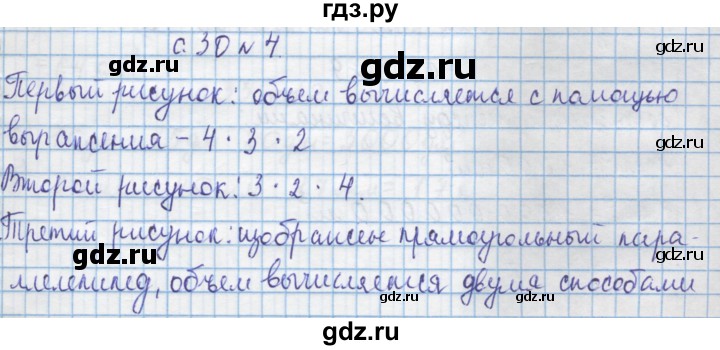 гдз.ру
с. 30 № 4.
gdz.ru gdz.ru
Первый рисунок: объем вычисляется с помощью
выражения - 4 · 3 · 2
gdz.ru
gdz.ru
Второй рисунок: 3 · 2 · 4.
gdz.ru
Третий рисунок: изображен прямоугольный пара-
gdz.ru
ллелепипед, объем вычисляется двумя способами
gdz.ru
gdz.ru